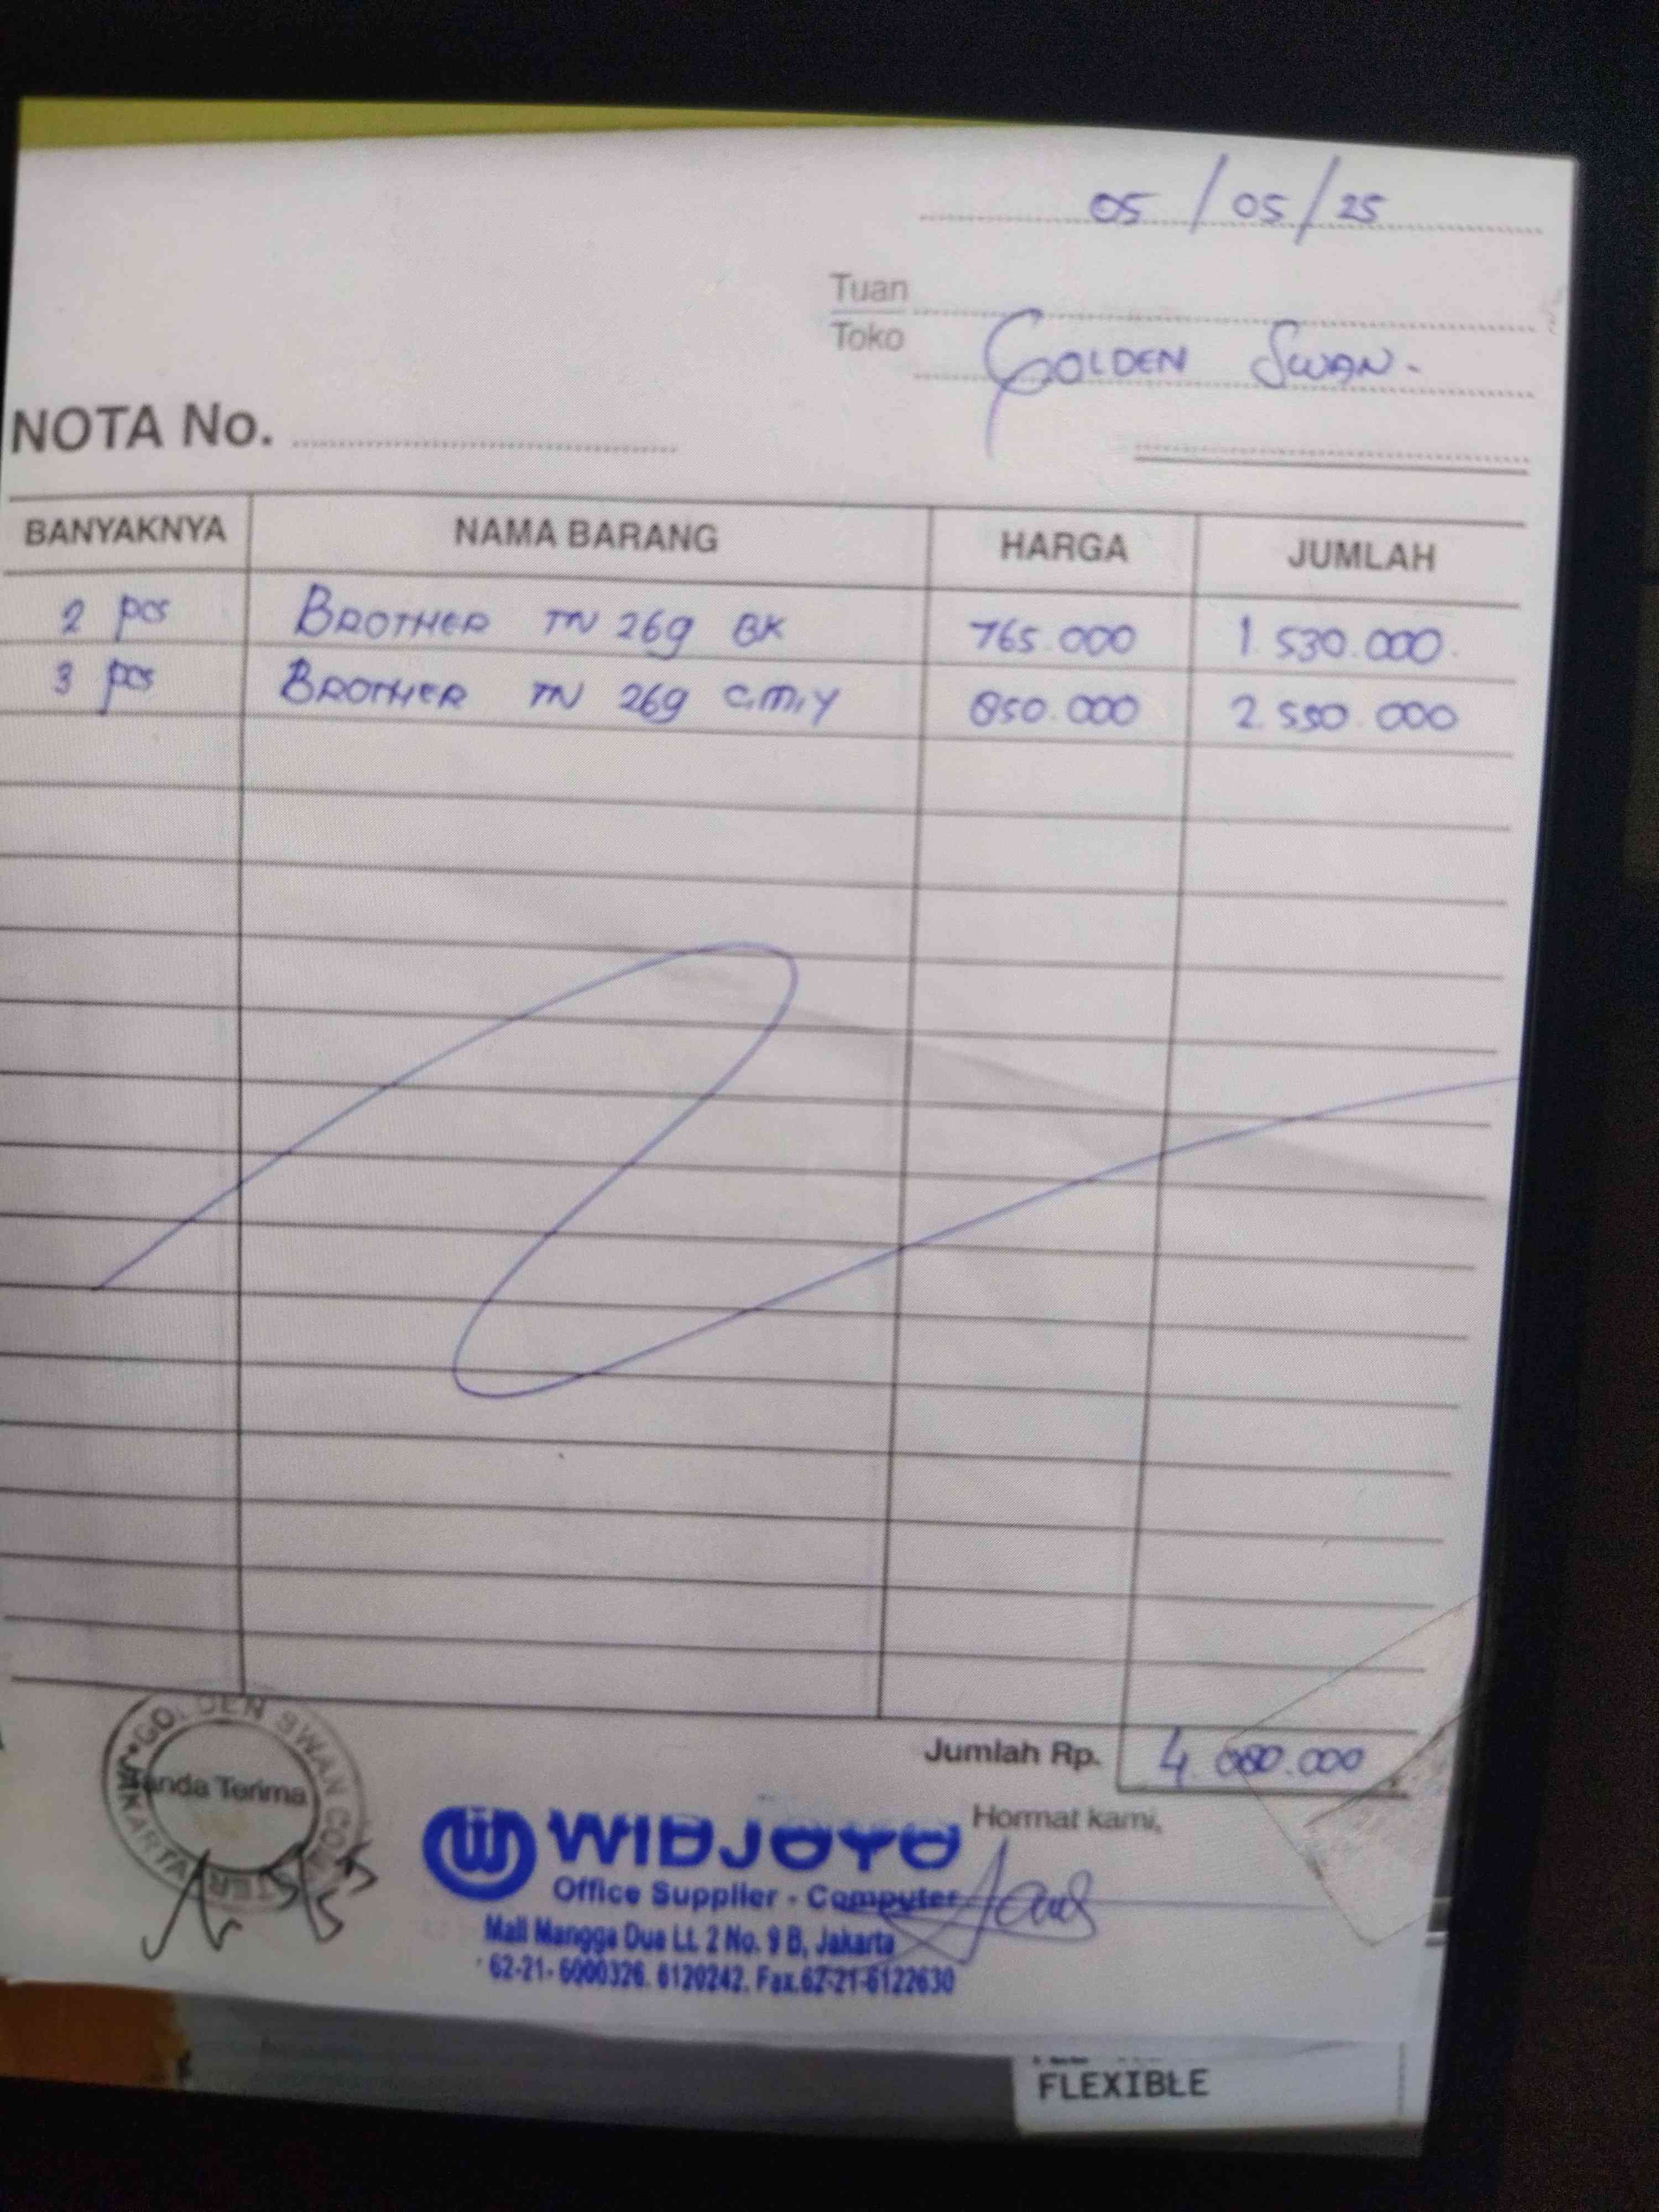 05/05/25
Tuan
Toko GOLDEN SWAN.
NOTA No.
BANYAKNYA NAMA BARANG HARGA JUMLAH
2 pcs BROTHER TN 269 BK 765.000 1.530.000.
3 pcs BROTHER TN 269 C,M,Y 850.000 2.550.000
Jumlah Rp. 4.080.000
GOLDEN SWAN JAKARTA
Tanda Terima
Hormat kami,
WIDJOYO
Office Supplier - Computer
Mall Mangga Dua Lt. 2 No. 9 B, Jakarta
62-21-6000326. 6120242. Fax.62-21-6122630
FLEXIBLE